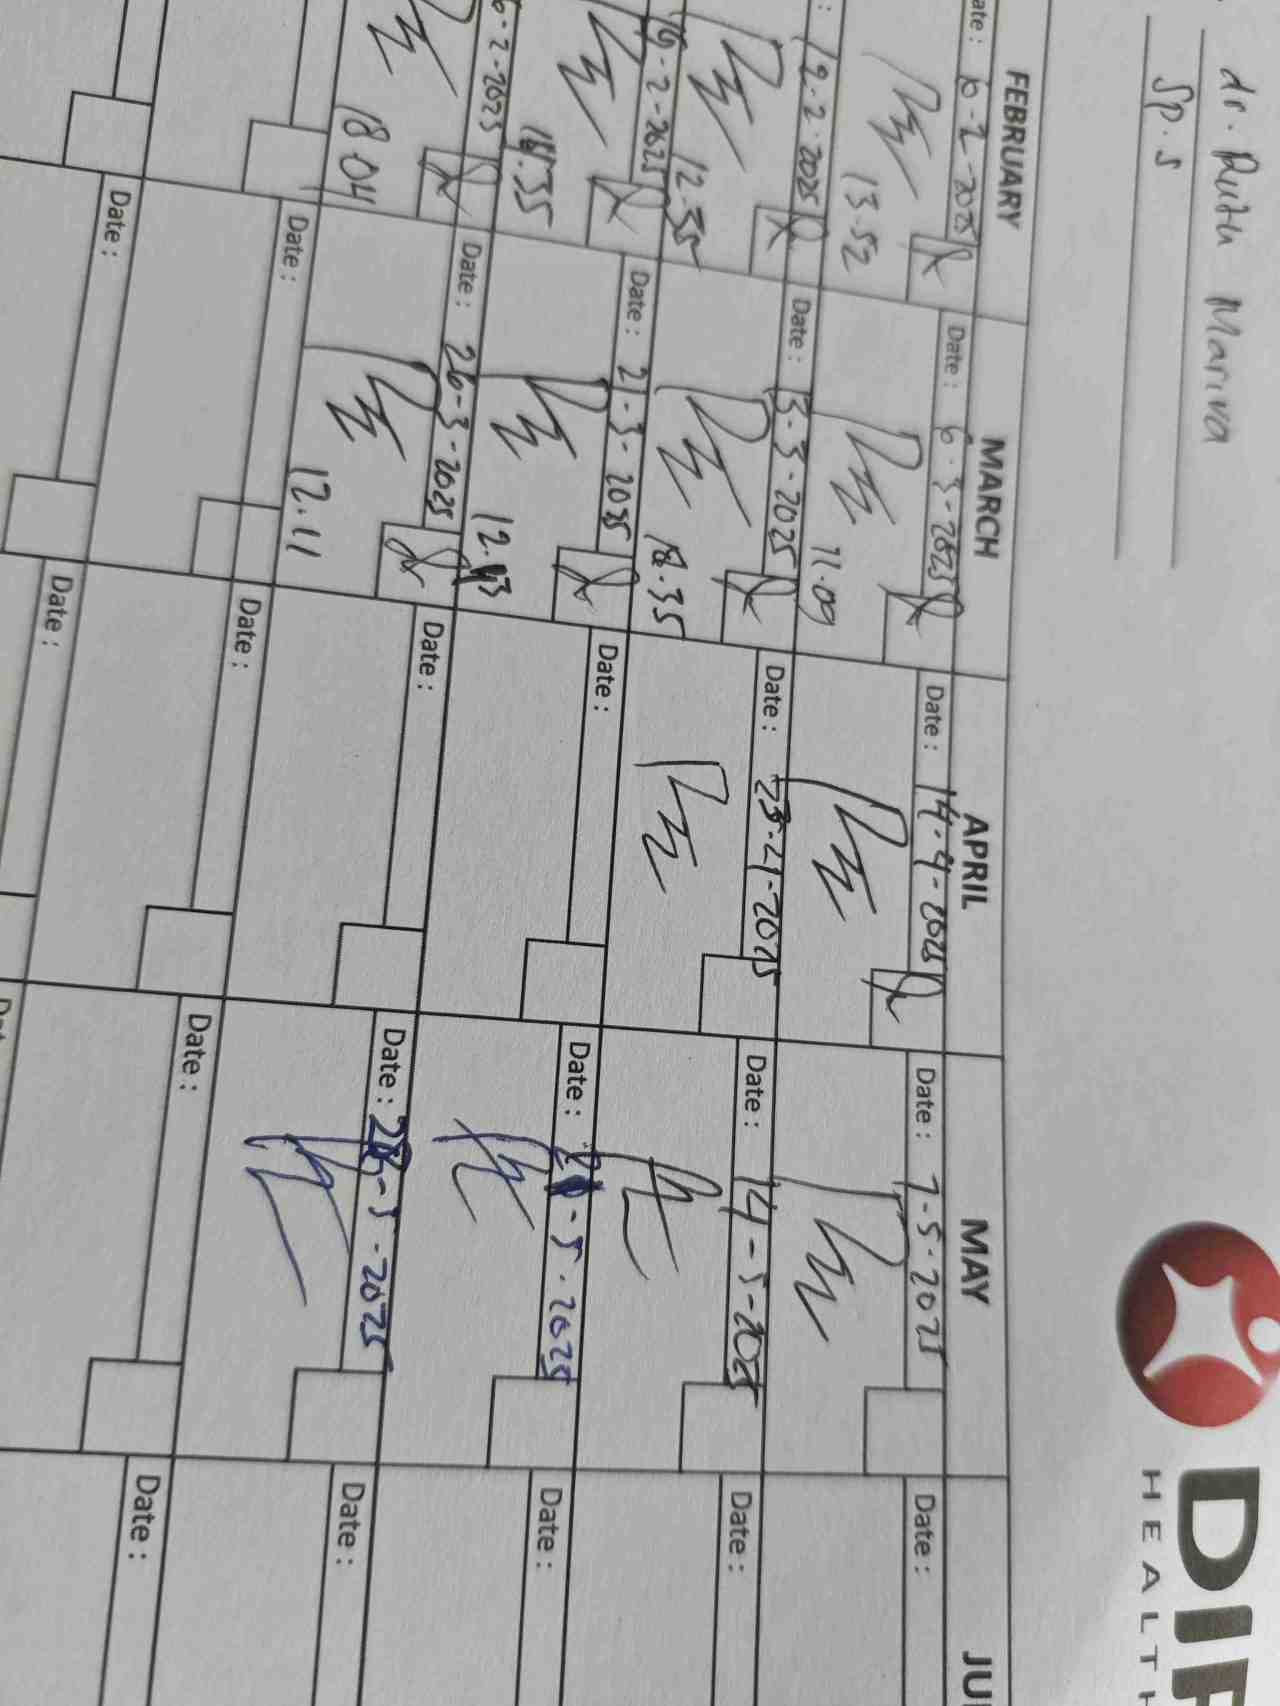 dr. Ruth Mariva
Sp. S
DI
HEALTH
FEBRUARY
MARCH
APRIL
MAY
JU
ate : 6-2-2025
13.52
Date : 6-3-2025
11.09
Date : 14-4-2025
Date : 7-5-2025
Date :
: 12-2-2025
12.35
Date : 3-3-2025
18.35
Date : 23-4-2025
Date : 14-5-2025
Date :
19-2-2025
18.35
Date : 21-3-2025
12.43
Date :
Date : 21-5-2025
Date :
6-2-2025
18.04
Date : 26-3-2025
12.11
Date :
Date : 28-5-2025
Date :
Date :
Date :
Date :
Date :
Date :
Date :
Dat